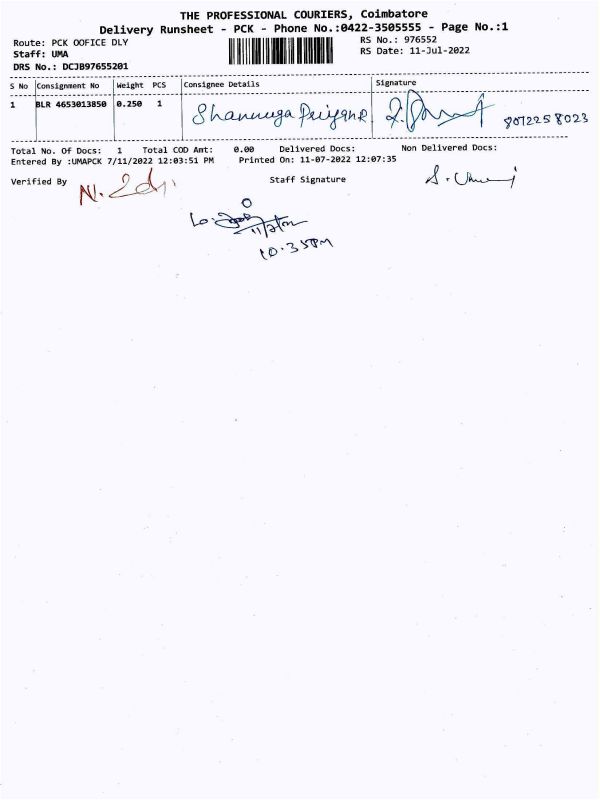 THE PROFESSIONAL COURIERS, Coimbatore
Delivery Runsheet - PCK - Phone No.:0422-3505555 - Page No.:1
Route: PCK OOFICE DLY
RS No.: 976552
Staff: UMA
RS Date: 11-Jul-2022
DRS No.: DCJB97655201
S No Consignment No Weight PCS Consignee Details Signature
1 BLR 4653013850 0.250 1 8072258023
Total No. Of Docs: 1 Total COD Amt: 0.00 Delivered Docs: Non Delivered Docs:
Entered By :UMAPCK 7/11/2022 12:03:51 PM Printed On: 11-07-2022 12:07:35
Verified By Staff Signature
10.35PM